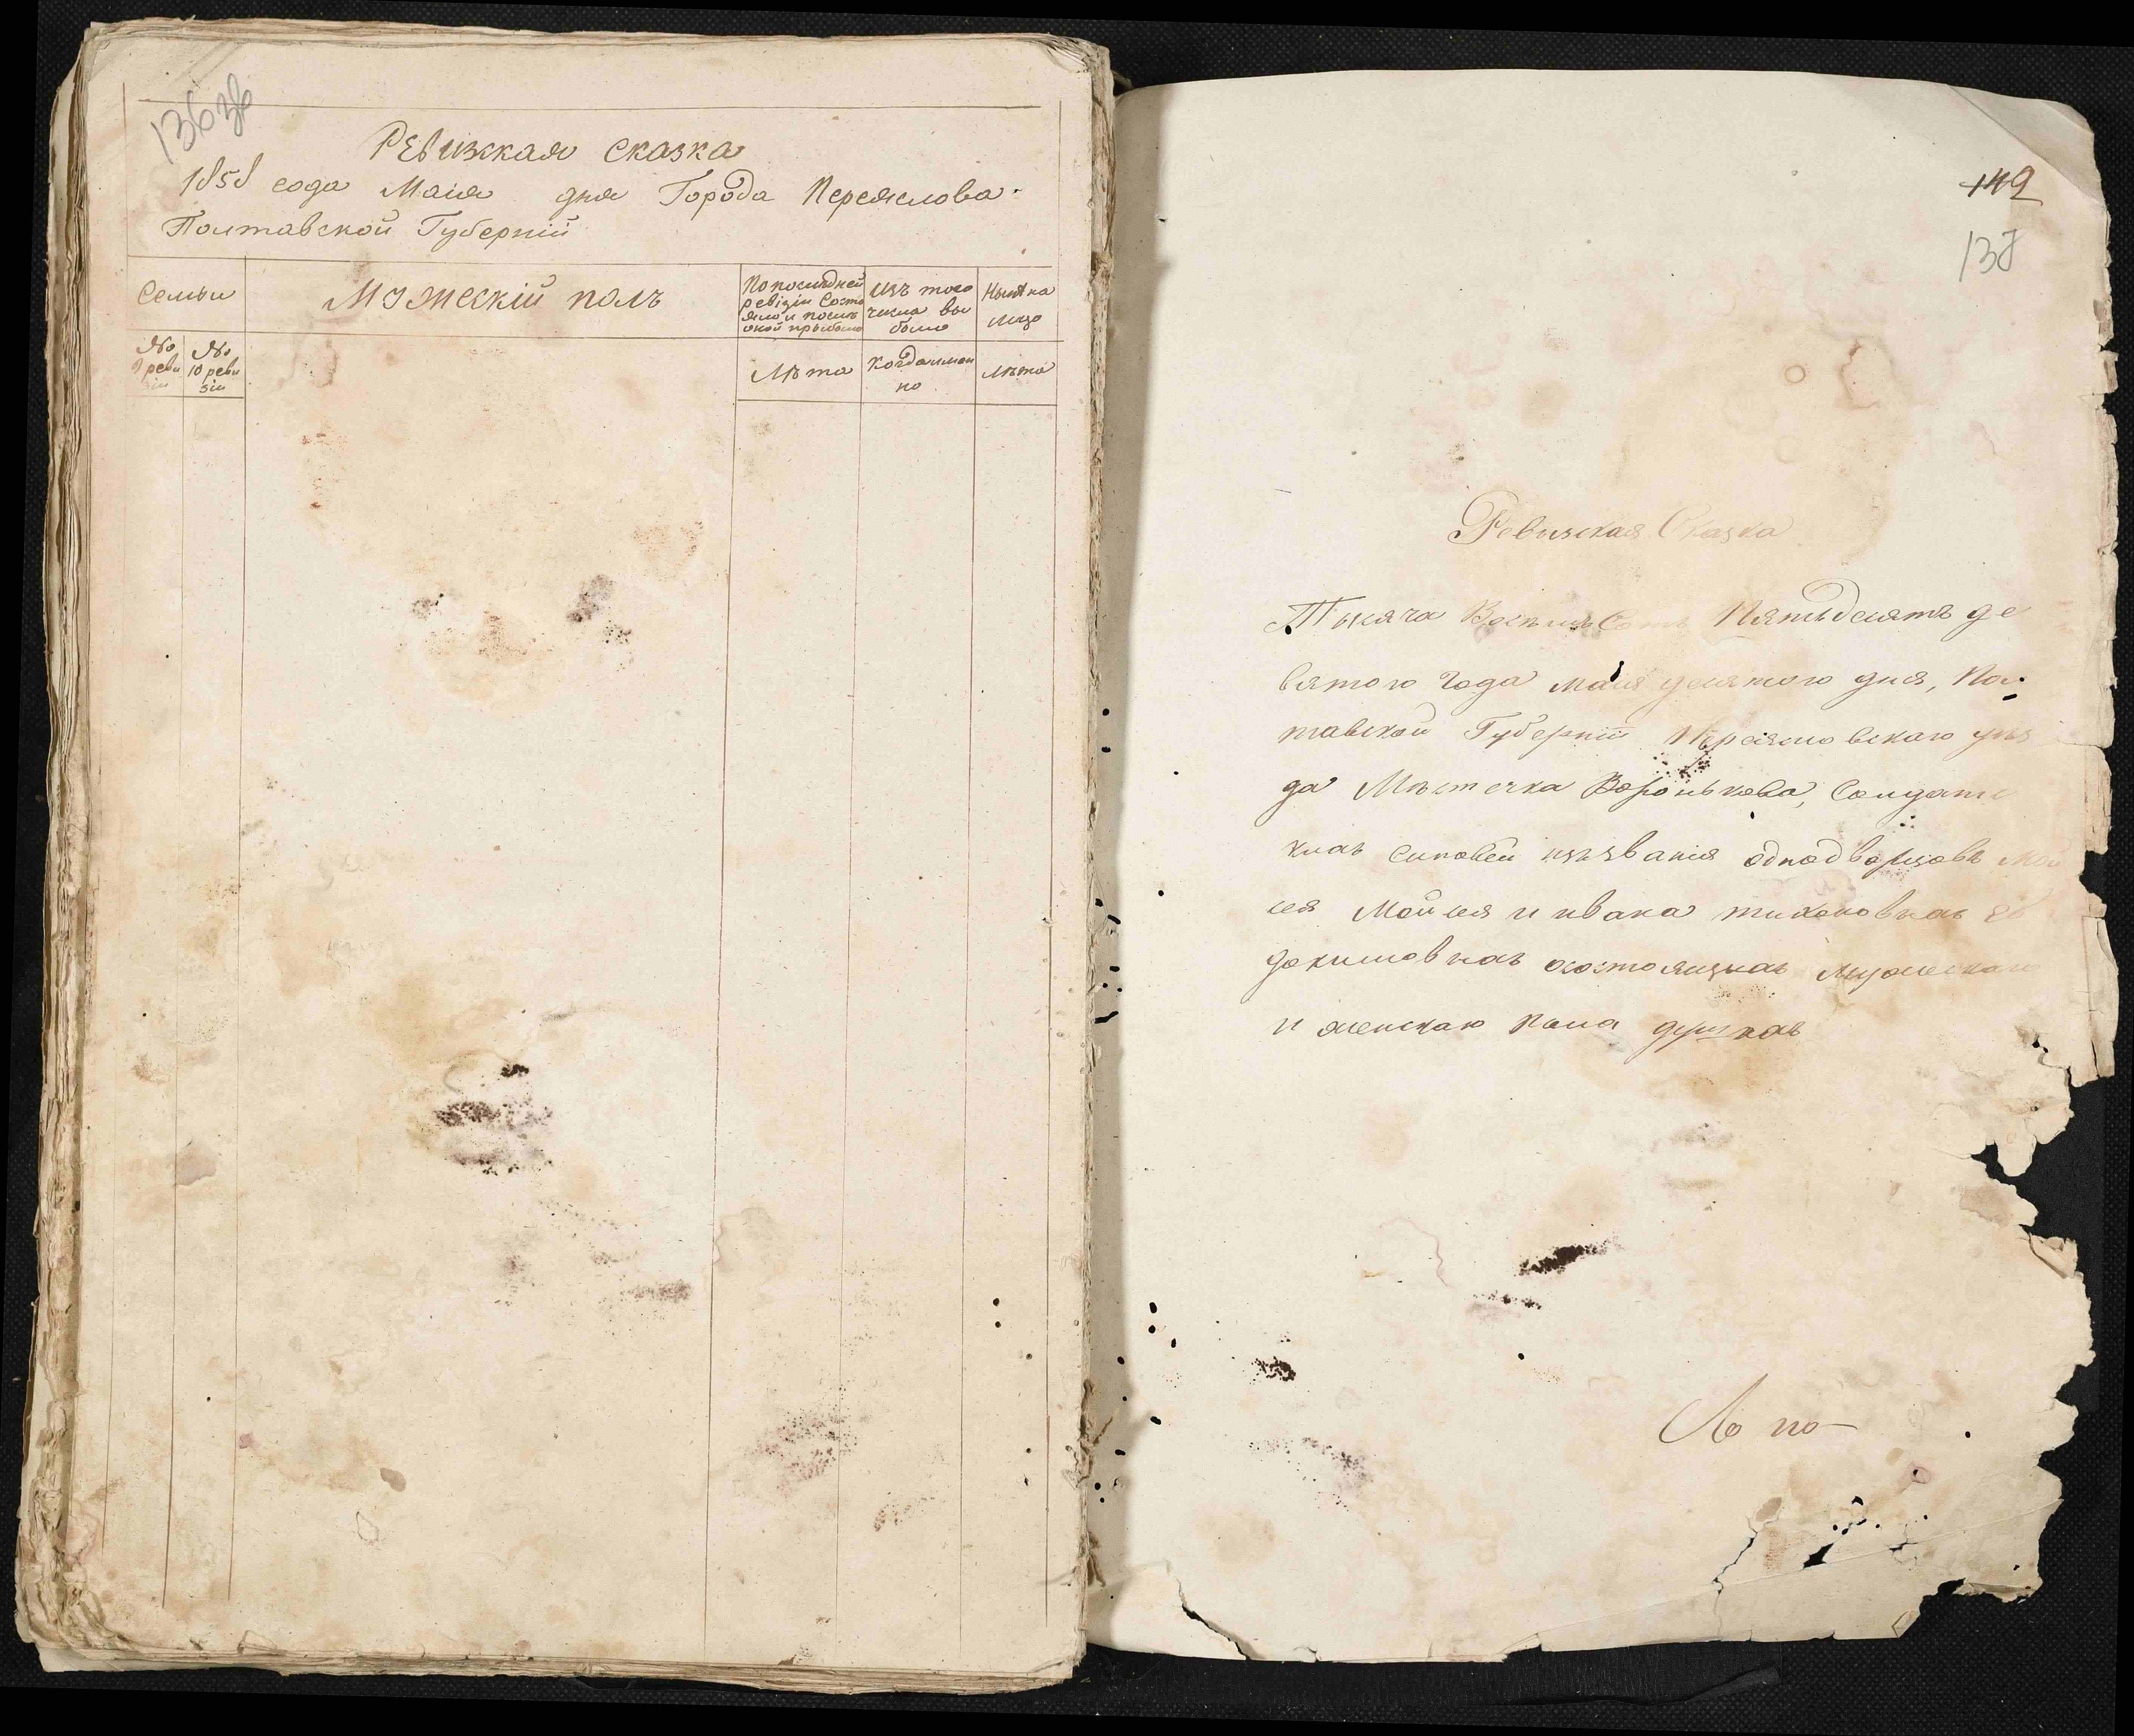 136 зв
Ревизская сказка
1858 года Маія дня Города Переяслова
Полтавской Губерніи
Семьи
Мужескій полъ
По последней ревізіи состояло и после оной прыбыло
Изъ того числа выбыло
Ныне на лицо
№ 9 ревизіи
№ 10 ревизіи
Лѣта
Когда имянно
Лѣта
149
138
Ревизская Сказка
Тысяча Восемь Сотъ Пятьдесятъ де
вятого года маия десятого дня, Пол
тавской Губерніи Переясловскаго уез
да Мѣстечка Воронькова, Солдатс
кихъ синовей изъ звания однодворцовъ
сея Мойсея и ивана тихоновыхъ Ев
докимовыхъ состоящихъ мужескаго
и женскаго пола душахъ